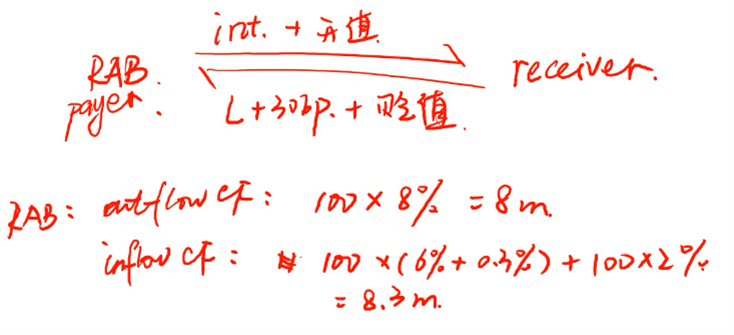 int. + 升值
RAB. payer.
receiver.
L+30bp. + 贬值
RAB: outflow CF: 100 × 8% = 8m.
inflow CF: 100 × (6% + 0.3%) + 100 × 2%
= 8.3m.